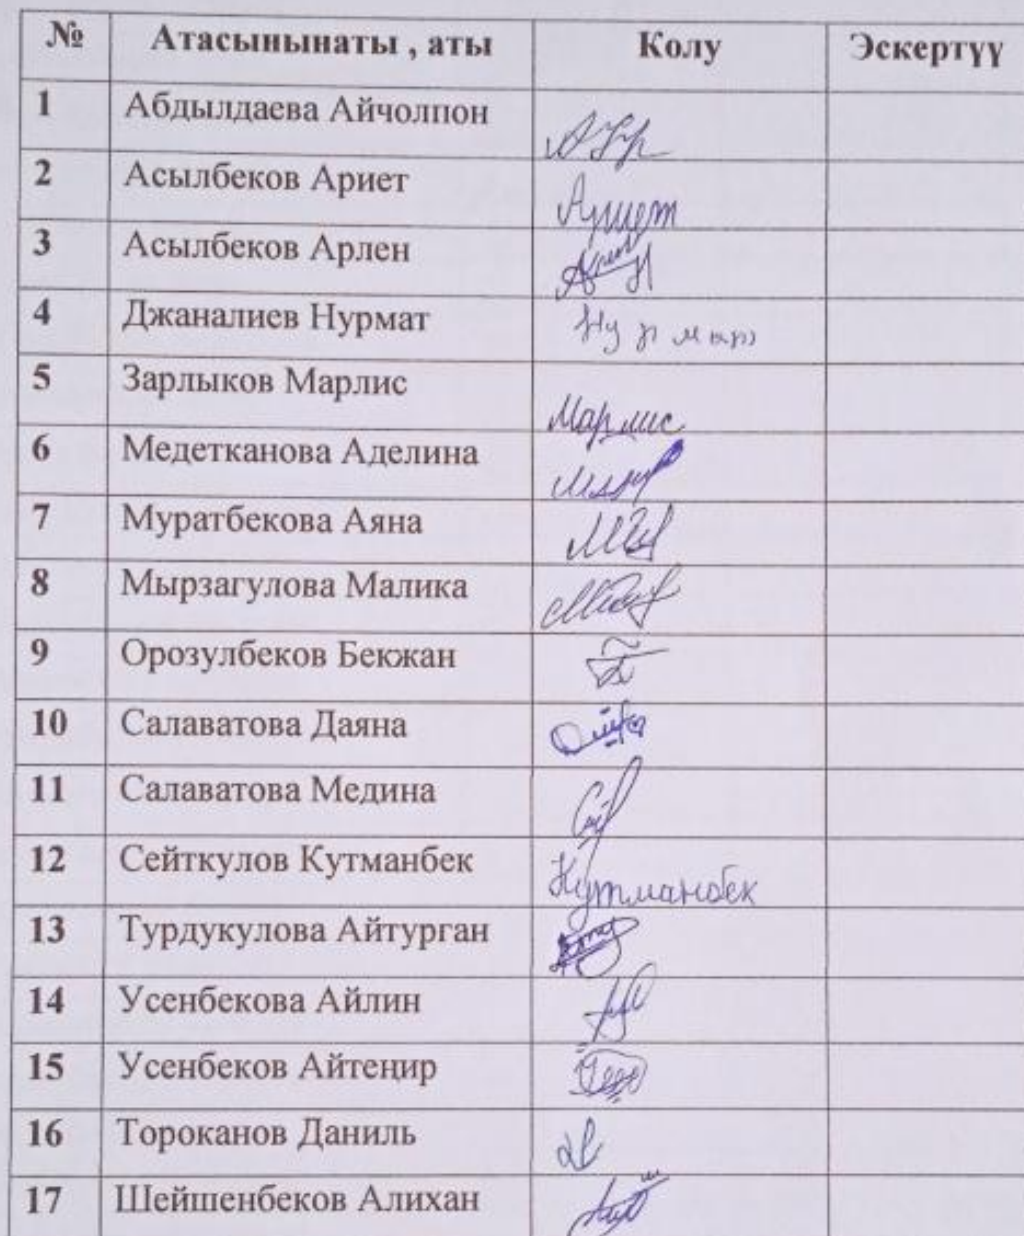 № Атасынынаты , аты Колу Эскертүү
1 Абдылдаева Айчолпон
2 Асылбеков Ариет Ариет
3 Асылбеков Арлен
4 Джаналиев Нурмат Нурмат
5 Зарлыков Марлис Марлис
6 Медетканова Аделина
7 Муратбекова Аяна
8 Мырзагулова Малика
9 Орозулбеков Бекжан
10 Салаватова Даяна
11 Салаватова Медина
12 Сейткулов Кутманбек Кутманбек
13 Турдукулова Айтурган
14 Усенбекова Айлин
15 Усенбеков Айтеңир
16 Тороканов Даниль
17 Шейшенбеков Алихан